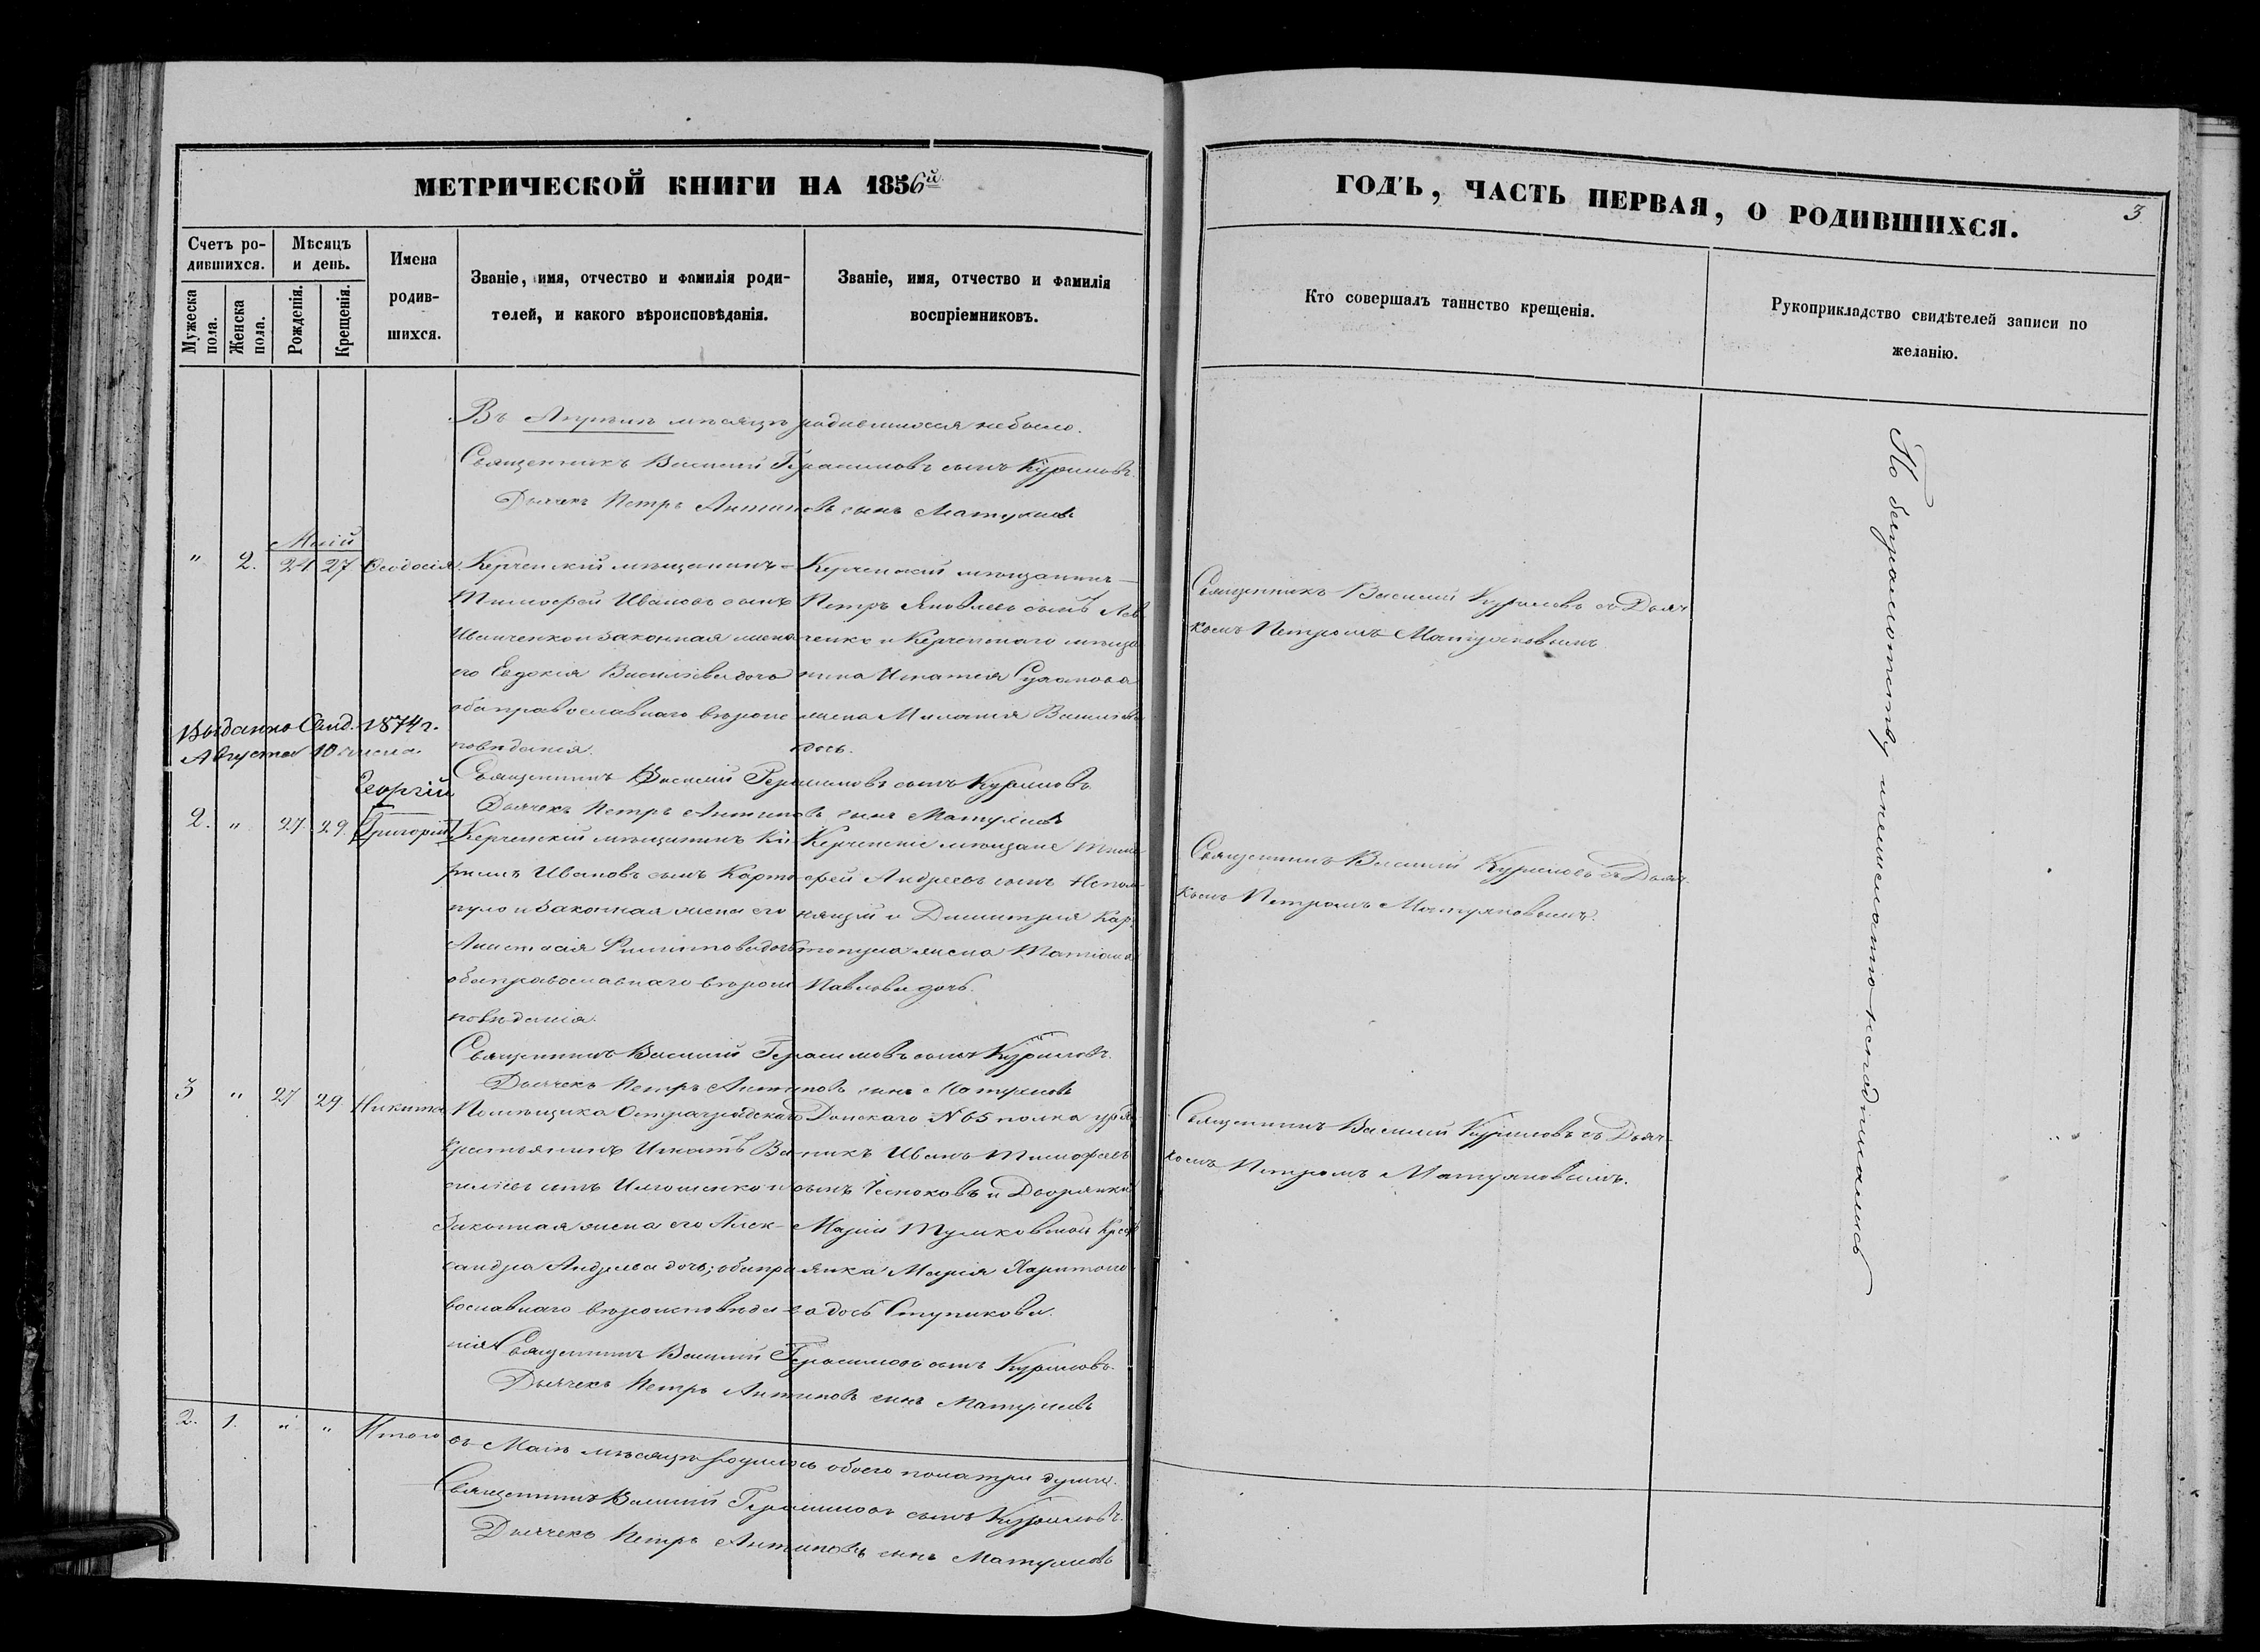 МЕТРИЧЕСКОЙ КНИГИ НА 1856й
ГОДЪ, ЧАСТЬ ПЕРВАЯ, О РОДИВШИХСЯ.
3
Счетъ ро-
дившихся.
Мѣсяцъ
и день.
Мужеска
пола.
Женска
пола.
Рожденія.
Крещенія.
Имена
родив-
шихся.
Званіе, имя, отчество и фамилія роди-
телей, и какого вѣроисповѣданія.
Званіе, имя, отчество и фамилія
воспріемниковъ.
Кто совершалъ таинство крещенія.
Рукоприкладство свидѣтелей записи по
желанію.
Въ Апрѣлѣ мѣсяцѣ родившихся небыло.
Священникъ Василій Герасимовъ сынъ Куриловъ.
Дьячекъ Петръ Антиповъ сынъ
Май
" 2. 24 27 Ѳеодосія
Керченскій мѣщанинъ
Тимофей Ивановъ сынъ
Иванченко и законная жена
его Евдокія Васильева дочь
оба православнаго вѣроис
повѣданія.
Керченскій мѣщанинъ
Петръ Яковлевъ сынъ Лев
ченко и Керченскаго мѣща
нина Игнатія
жена Василіева
дочь.
Священникъ Василій Куриловъ съ Дьяч
комъ Петромъ
Выданно Свид. 1874 г.
Августа 10 числа.
Священникъ Василій Герасимовъ сынъ Куриловъ.
Дьячекъ Петръ Антиповъ сынъ
Георгій
2. " 27. 29. Григорій
Керченскій мѣщанинъ Ки
рилъ Ивановъ сынъ Карто
пуло и законная жена его
Анастасія Филипова дочь
оба православнаго вѣроис
повѣданія.
Керченскіе мѣщане Тимо
фей Андреевъ сынъ
и Димитрія Кар
топула жена Татіана
Павлова дочь.
Священникъ Василій Куриловъ съ Дьяч
комъ Петромъ
Священникъ Василій Герасимовъ сынъ Куриловъ.
Дьячекъ Петръ Антиповъ сынъ
3 " 27 29 Никита
Помѣщика Остраградскаго
крестьянинъ Игнатъ Ва
силіевъ сынъ и
законная жена его Алек-
сандра Андреева дочь; оба пра
вославнаго вѣроисповѣда
нія
Донскаго N 65 полка уряд
никъ Иванъ Тимофеевъ
сынъ Чесноковъ и Дворянки
Маріи крест
янка Марія Харитоно
ва дочь Ступикова.
Священникъ Василій Куриловъ съ Дьяч
комъ Петромъ
Священникъ Василій Герасимовъ сынъ Куриловъ.
Дьячекъ Петръ Антиповъ сынъ
2. 1. " " Итого въ Маіѣ мѣсяцѣ родилось обоего пола три души.
Священникъ Василій Герасимовъ сынъ Куриловъ.
Дьячекъ Петръ Антиповъ сынъ
По безграмотству никто неподписались